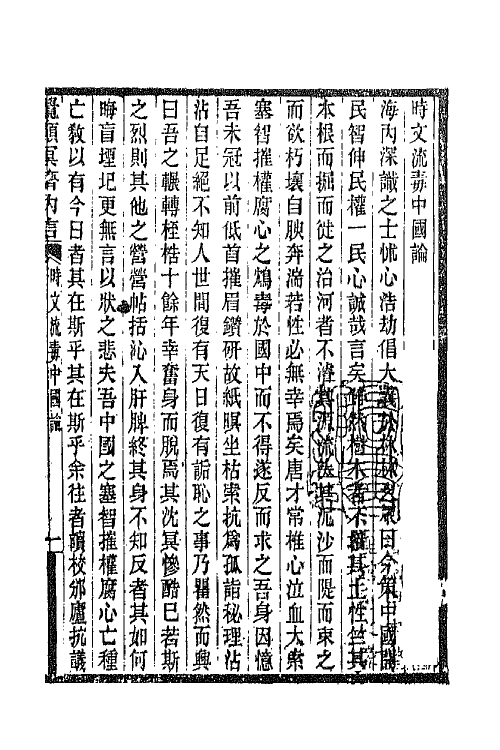 時文流毒中國論
海內深識之士怵心浩劫倡大義於眾曰今策中國開
民智伸民權一民心誠哉言矣雖然樹木者不握其土性竺其
本根而掘而徙之治河者不濬其源流汰其沉沙而隄而束之
而欲朽壞自腴奔湍若性必無幸焉矣唐才常椎心泣血大索
塞智摧權腐心之鴆毒於國中而不得遂反而求之吾身因憶
吾未冠以前低首摧眉鑽研故紙瞑坐枯槁抗為孤詣秘理沾
沾自足絕不知人世間復有天日復有詬恥之事乃瞿然而興
曰吾之輾轉桎梏十餘年幸奮身而脫焉其沈冥慘酷已若斯
之烈則其他之營營帖括沁入肝脾終其身不知反者其如何
晦盲堙圮更無言以狀之悲夫吾中國之塞智摧權腐心亡種
亡教以有今日者其在斯乎其在斯乎余往者讀校邠廬抗議
覺顛冥齋內言 時文流毒中國論 一